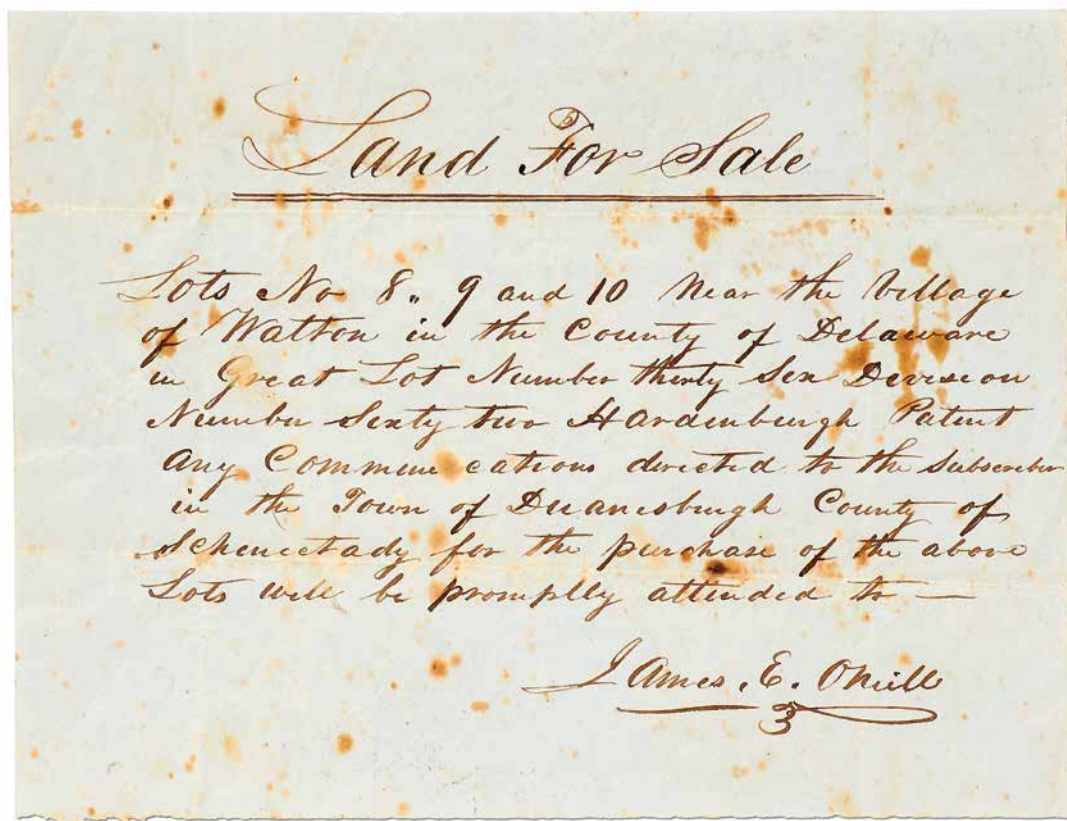 Land For Sale
Lots No 8,, 9 and 10 Near the Village
of Walton in the County of Delaware
in Great Lot Number thirty Six Division
Number Sixty two Hardenburgh Patent
Any Communications directed to the Subscriber
in the Town of Duanesburgh County of
Schenectady for the purchase of the above
Lots will be promptly attended to —
James. E. ONeill